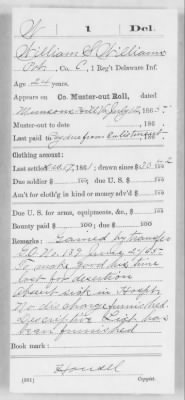 W | 1 | Del.
William S. Williams
Pvt., Co. C, 1 Reg't Delaware Inf.
Age 24 years
Appears on Co. Muster-out Roll, dated
Munsons Hill Va July 12, 1865.
Muster-out to date 186 .
Last paid to
Clothing account:
Last settled 186 ; drawn since $ 100
Due soldier $ 100; due U. S. $ 100
Am't for cloth'g in kind or money adv'd $ 100
Due U. S. for arms, equipments, &c., $ 100
Bounty paid $ 100; due $ 100
Remarks: Gained by transfer
To make good the time
lost for desertion
Absent sick in Hospt.
No discharge furnished
Descriptive List has
been furnished
Book mark:
(361) Copyist.